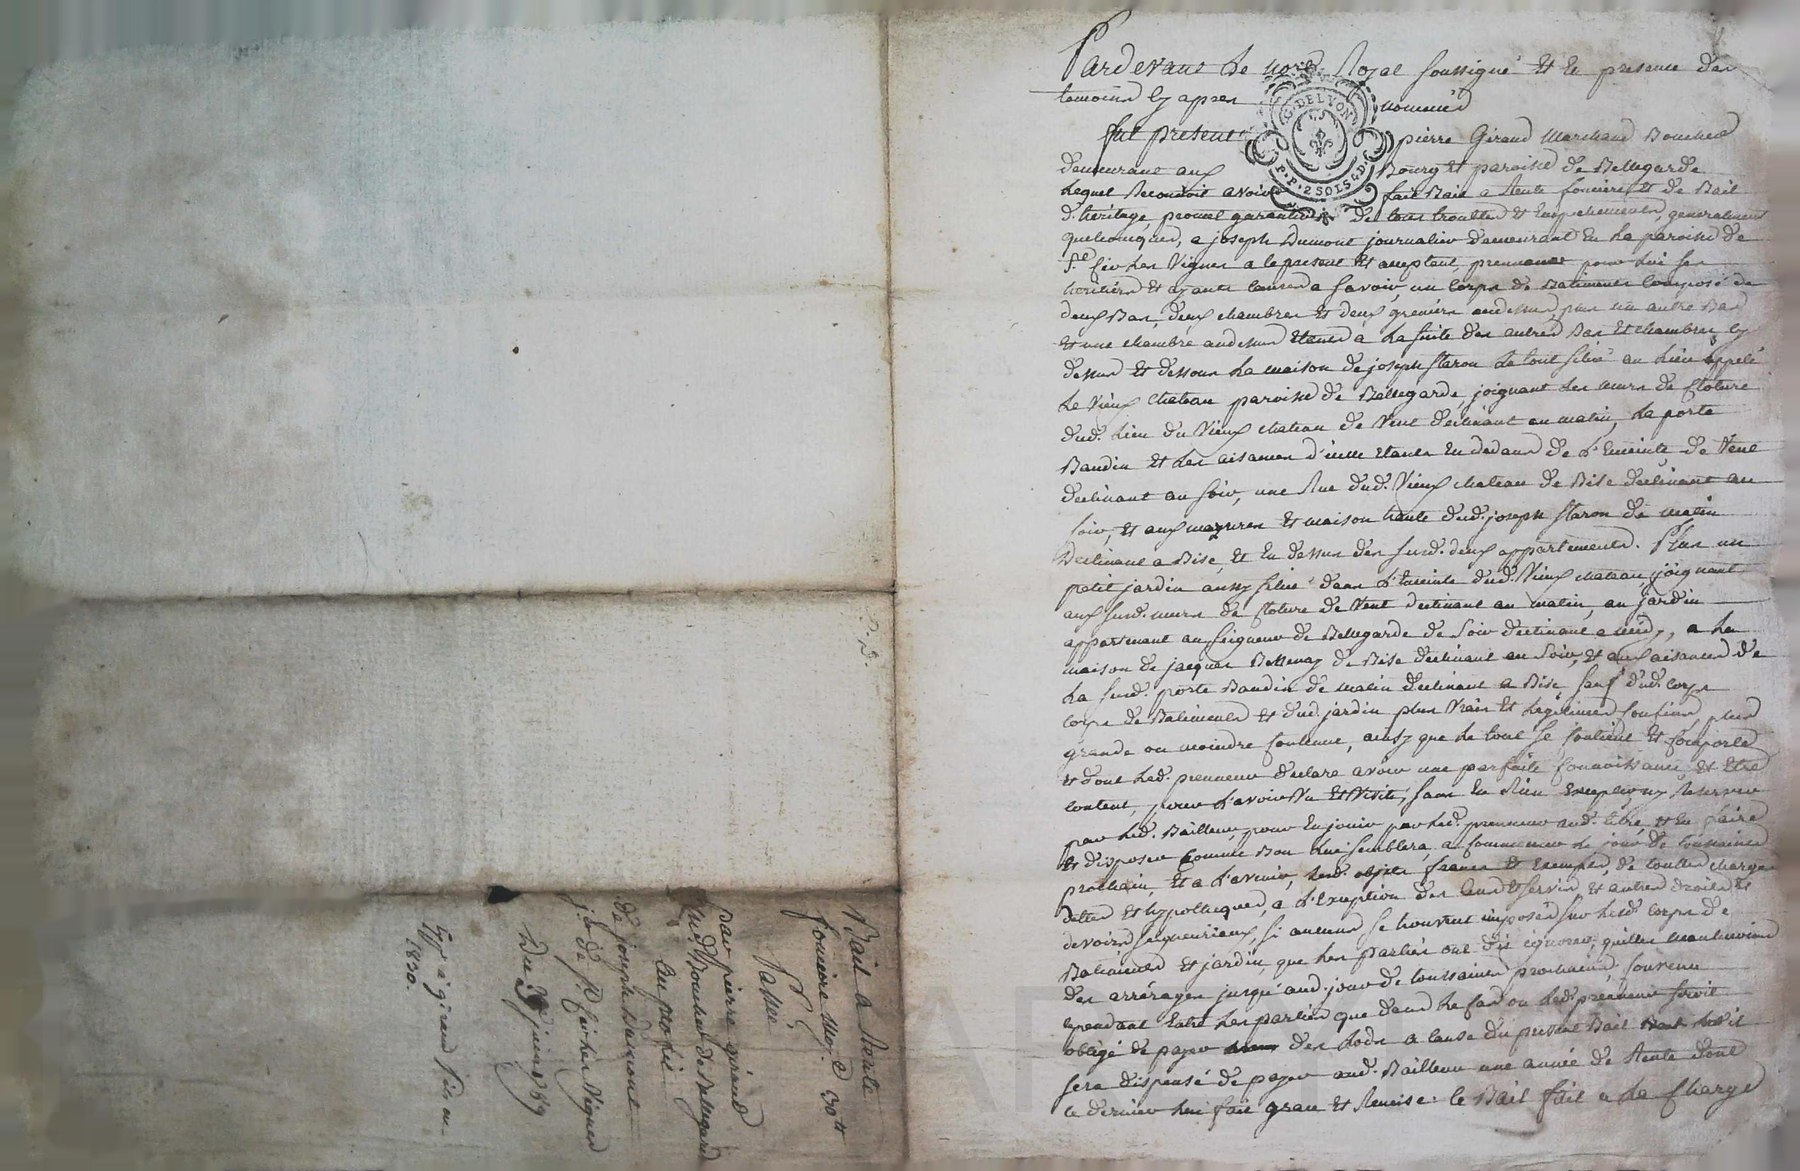 Pardevant Le nore. Royal soussigné Et En presence des
temoins Cy apres nommés
fut present pierre Giraud Marchand Boucher
demeurant aux Bourg Et paroisse de Bellegarde
Lequel Reconnoit avoir fait Bail a Rente fonciere Et de Bail
d'héritage, promet garantir de tous troubles Et Empechements, generalement
quelconques, a joseph Dumont journalier demeurant En La paroisse de
St. Cir Les Vignes a le present Et acceptant, prenneur pour lui ses
heritiers Et ayants causes a savoir, un Corps de Batiments Composé de
deux Bas, deux chambres Et deux greniers audessus, plus un autre Bas
Et une chambre audessus Etants a La suite des autres Bas Et chambres Cy
dessus Et dessous La maison de joseph Staron Le tout situé au Lieu appelé
Le Vieux chateau paroisse de Bellegarde, joignant Les murs de Cloture
dud. Lieu du Vieux chateau de Vent declinant au matin, La porte
Baudin Et Les aisances d'icelle Etants En dedans de L'Enceinte de Vent
declinant au soir, une Rue dud. Vieux chateau de Bise declinant au
soir, Et aux mazures Et maison haute dud. joseph Staron de matin
Declinant a Bise, Et En dessus des susd. deux appartements. Plus un
petit jardin aussy situé dans L'Enceinte dud. Vieux chateau, joignant
aux susd. murs de Cloture de Vent declinant au matin, au jardin
appartenant au seigneur de Bellegarde de Soir declinant a midy, a La
maison de jacques Bessenay de Bise declinant au Soir, Et aux aisances de
La susd. porte Baudin de matin declinant a Bise, sauf dud. Corps
Corps de Batiments Et dud. jardin plus Vrais Et Légitimes Confins, plus
grande ou moindre Contenue, ainsy que Le tout se Contient Et Comporte
Et dont Led. prenneur declare avoir une parfaite Connoissance Et Etre
Content, pour L'avoir Vu Et Visité, sans En Rien Excepter ny Reserver
par Led. Bailleur, pour En jouir par Led. prenneur aud. titre Et En faire
Et disposer Comme Bon Lui semblera, a Commencer Le jour de toussaints
prochain, Et a L'avenir, Lesd. objets francs Et Exempts de touttes charges
dettes Et hypotheques, a L'Exception des Cens Et servis, Et autres droits Et
devoirs seigneuriaux, si aucuns se trouvent imposés sur Lesd. Corps de
Batiments Et jardin, que Les parties ont dit ignorer, quittes neantmoins
des arrérages jusqu'aud. jour de toussaints prochains, Convenu
Cependant Entre Les parties que dans Le Cas ou Led. prenneur seroit
obligé de payer des Lods a Cause du present Bail
sera dispensé de payer aud. Bailleur une année de Rente dont
Ce dernier Lui fait grace Et Remise. Ce Bail fait a La Charge
P. D.
Bail a Rente
fonciere moy. 30 tt
Passé
par pierre giraud
md. Boucher de Bellegarde
Au profit
de joseph Dumont
jer. de St. Cir Les Vignes
Du juin 1789
1830.